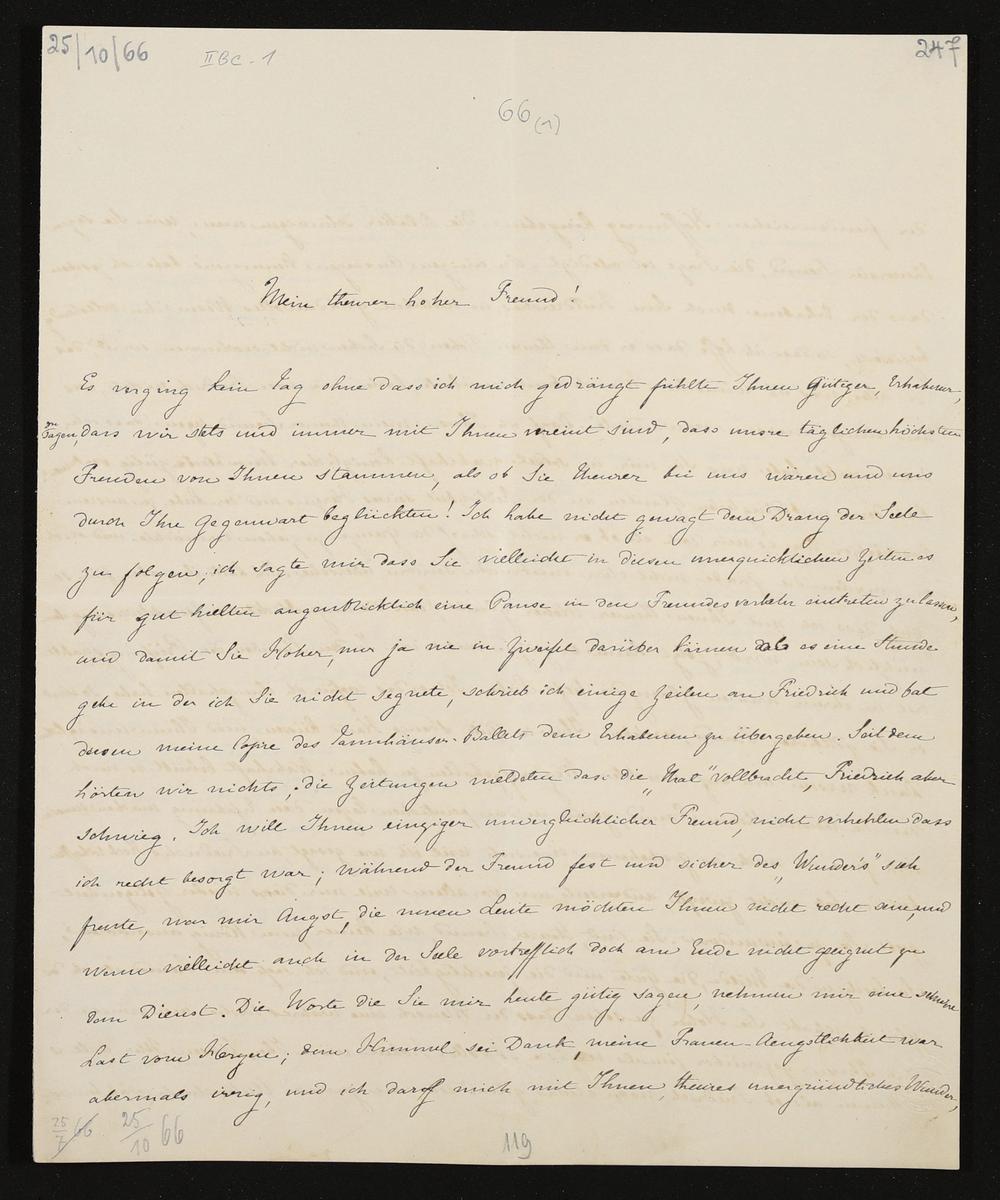 25/10/66 IIBC-1 247
66 (1)
Mein theurer hoher Freund!
Es verging kein Tag ohne dass ich mich gedrängt fühlte Ihnen Gütiger, Erhabener,
zu sagen, dass wir stets und immer mit Ihnen vereint sind, dass unsre täglichen höchsten
Freuden von Ihnen stammen, als ob Sie theurer bei uns wären und uns
durch Ihre Gegenwart beglückten! Ich habe nicht gewagt dem Drang der Seele
zu folgen; ich sagte mir dass Sie vielleicht in diesen unerquicklichen Zeiten es
für gut hielten augenblicklich eine Pause in den Freundesverkehr eintreten zu lassen,
und damit Sie Hoher, nur ja nie in Zweifel darüber kämen dass es eine Stunde
gebe in der ich Sie nicht segnete, schrieb ich einige Zeilen an Friedrich und bat
diesen meine Copie des Tannhäuser-Ballets dem Erhabenen zu übergeben. Seitdem
hörten wir nichts; die Zeitungen meldeten dass die „That" vollbracht, Friedrich aber
schwieg. Ich will Ihnen einziger unvergleichlicher Freund, nicht verhehlen dass
ich recht besorgt war; während der Freund fest und sicher des „Wunder's" sich
freute, war mir Angst, die neuen Leute möchten Ihnen nicht recht sein, und
wenn vielleicht auch in der Seele vortrefflich doch am Ende nicht geeignet zu
dem Dienst. Die Worte die Sie mir heute gütig sagen, nehmen mir eine schwere
Last vom Herzen; dem Himmel sei Dank, meine Frauen-Aengstlichkeit war
abermals irrig, und ich darff mich mit Ihnen, theures unergründliches Wunder,
25/7 66 25/10 66 119